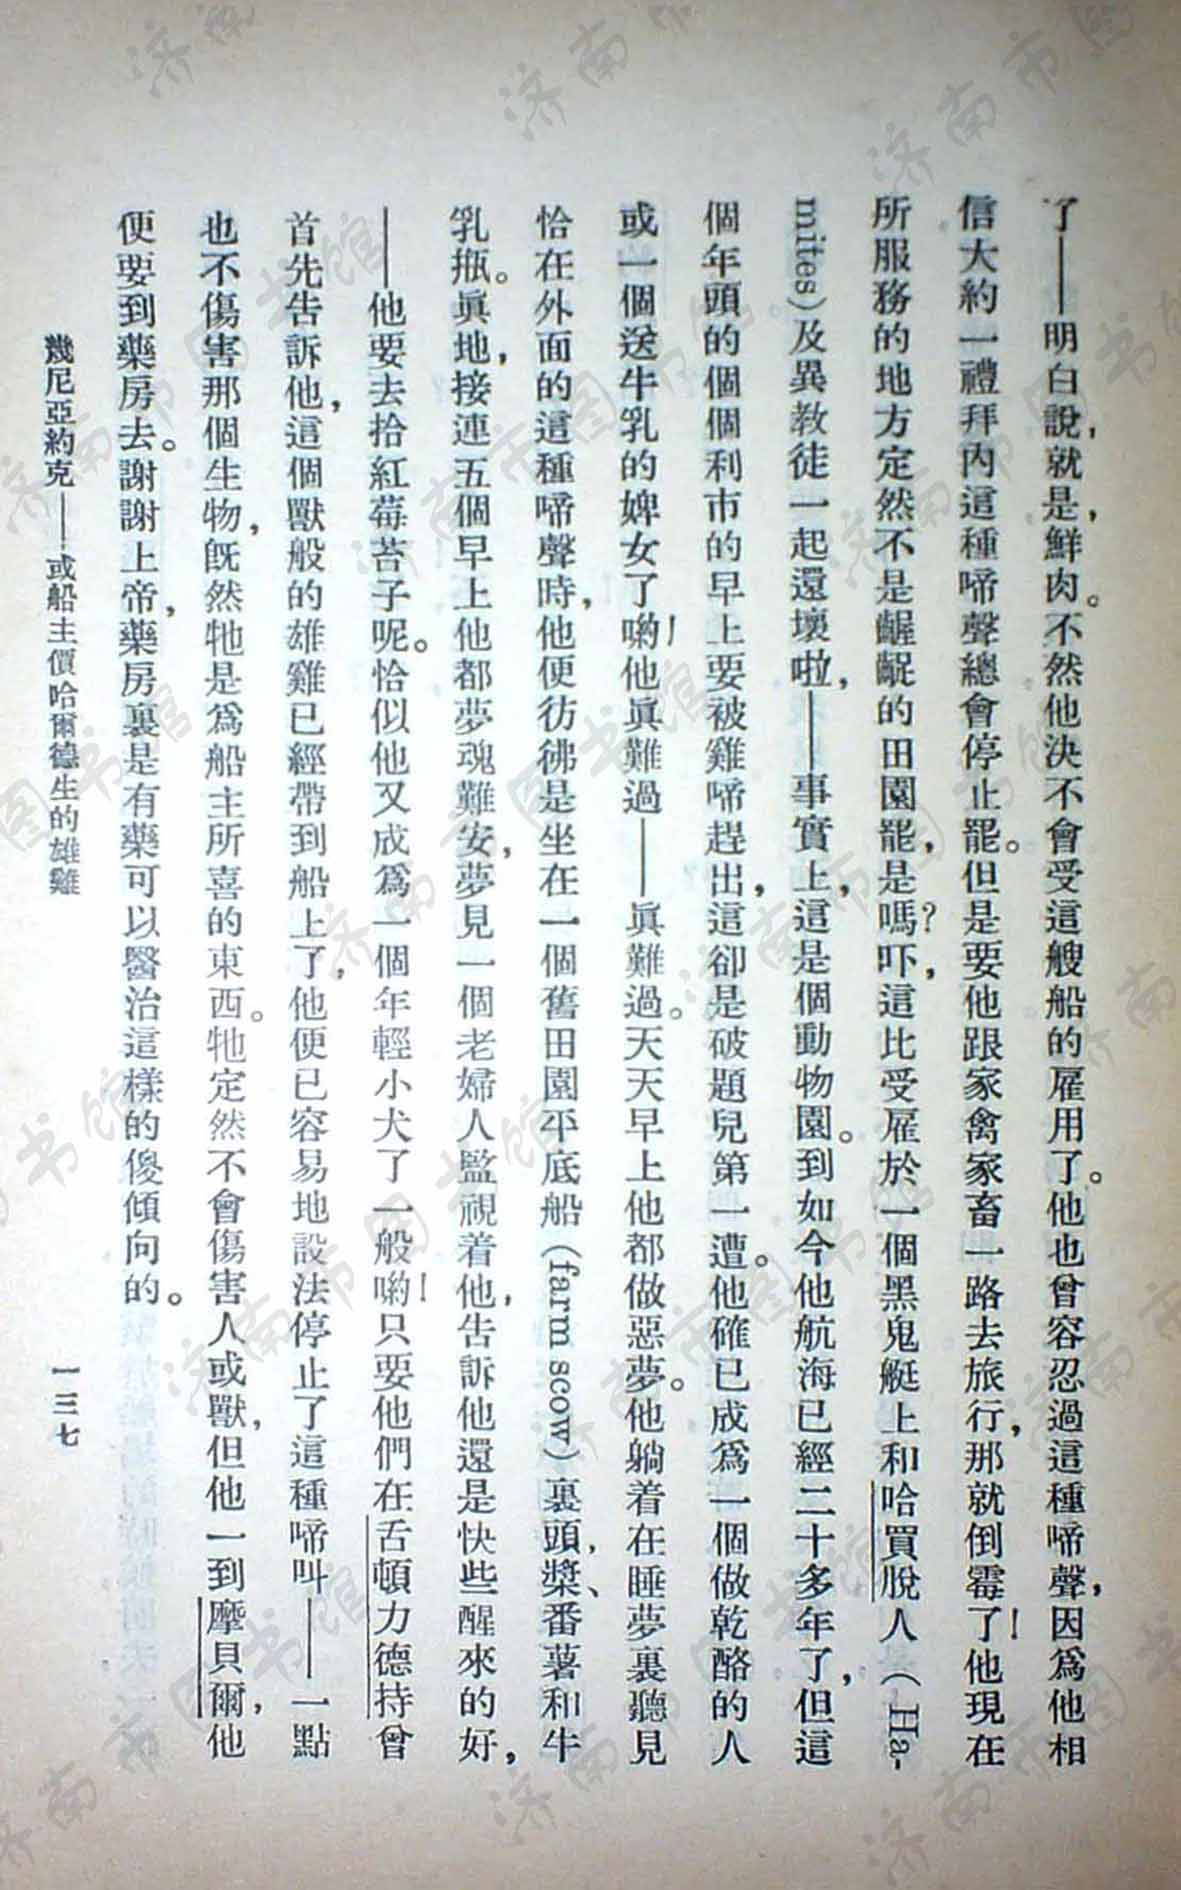 了——明白說，就是，鮮肉。不然他決不會受這艘船的雇用了。他也曾容忍過這種啼聲，因爲他相
信大約一禮拜內這種啼聲總會停止罷。但是要他跟家禽家畜一路去旅行，那就倒霉了！他現在
所服務的地方定然不是齷齪的田園罷，是嗎？吓，這比受雇於一個黑鬼艇上和哈買脫人（Ha-
mites）及異教徒一起還壞啦，——事實上，這是個動物園。到如今他航海已經二十多年了，但這
個年頭的個個利市的早上要被雞啼趕出，這卻是破題兒第一遭。他確已成爲一個做乾酪的人
或一個送牛乳的婢女了喲！他眞難過——眞難過。天天早上他都做惡夢。他躺着在睡夢裏聽見
恰在外面的這種啼聲時，他便彷彿是坐在一個舊田園平底船（farm scow）裏頭，槳、番薯和牛
乳瓶。眞地，接連五個早上他都夢魂難安，夢見一個老婦人監視着他，告訴他還是快些醒來的好，
——他要去拾紅莓苔子呢。恰似他又成爲一個年輕小犬了一般喲！只要他們在舌頓力德持曾
首先告訴他，這個獸般的雄雞已經帶到船上了，他便已容易地設法停止了這種啼叫——一點
也不傷害那個生物，旣然牠是爲船主所喜的東西。牠定然不會傷害人或獸，但他一到摩貝爾，他
便要到藥房去。謝謝上帝，藥房裏是有藥可以醫治這樣的傻傾向的。
幾尼亞約克——或船主價哈爾德生的雄雞
一三七
济南市图书馆